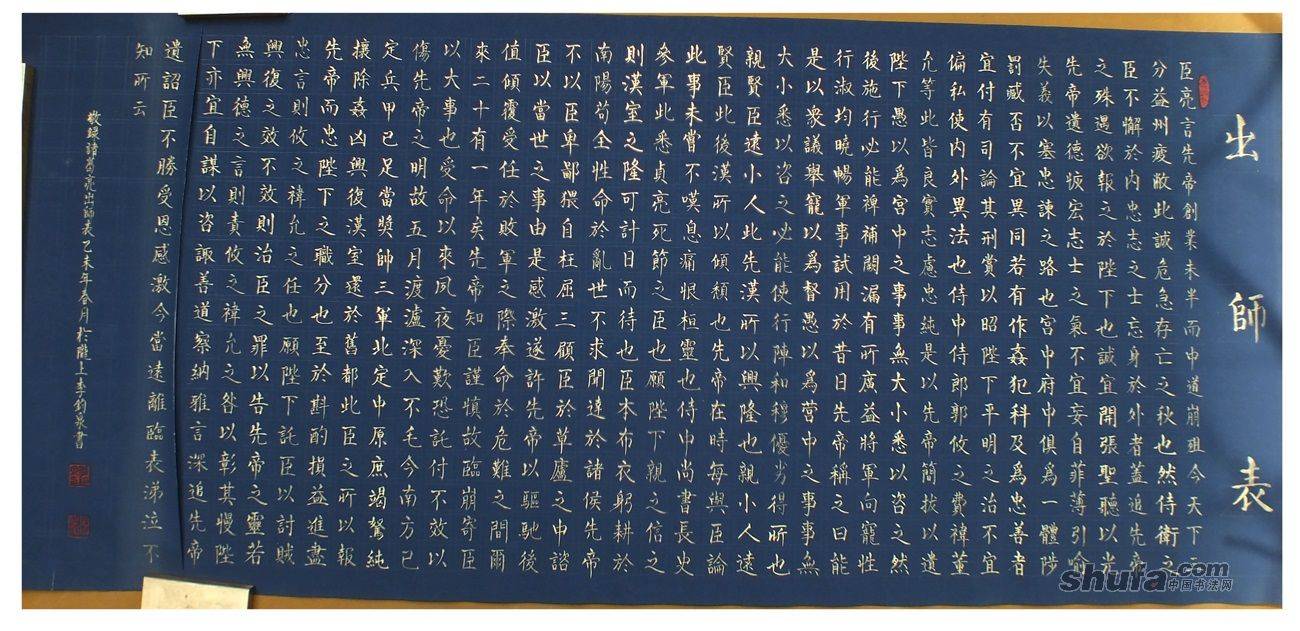 出師表
臣亮言先帝創業未半而中道崩殂今天下三
分益州疲敝此誠危急存亡之秋也然侍衛之
臣不懈於內忠志之士忘身於外者蓋追先帝
之殊遇欲報之於陛下也誠宜開張聖聽以光
先帝遺德恢宏志士之氣不宜妄自菲薄引喻
失義以塞忠諫之路也宮中府中俱為一體陟
罰臧否不宜異同若有作姦犯科及為忠善者
宜付有司論其刑賞以昭陛下平明之治不宜
偏私使內外異法也侍中侍郎郭攸之費禕董
允等此皆良實志慮忠純是以先帝簡拔以遺
陛下愚以為宮中之事事無大小悉以咨之然
後施行必能裨補闕漏有所廣益將軍向寵性
行淑均曉暢軍事試用於昔日先帝稱之曰能
是以眾議舉寵以為督愚以為營中之事事無
大小悉以咨之必能使行陣和穆優劣得所也
親賢臣遠小人此先漢所以興隆也親小人遠
賢臣此後漢所以傾頹也先帝在時每與臣論
此事未嘗不嘆息痛恨桓靈也侍中尚書長史
參軍此悉貞亮死節之臣也願陛下親之信之
則漢室之隆可計日而待也臣本布衣躬耕於
南陽苟全性命於亂世不求聞達於諸侯先帝
不以臣卑鄙猥自枉屈三顧臣於草廬之中諮
臣以當世之事由是感激遂許先帝以驅馳後
值傾覆受任於敗軍之際奉命於危難之間爾
來二十有一年矣先帝知臣謹慎故臨崩寄臣
以大事也受命以來夙夜憂歎恐託付不效以
傷先帝之明故五月渡瀘深入不毛今南方已
定兵甲已足當獎帥三軍北定中原庶竭駑純
攘除姦凶興復漢室還於舊都此臣之所以報
先帝而忠陛下之職分也至於斟酌損益進盡
忠言則攸之禕允之任也願陛下託臣以討賊
興復之效不效則治臣之罪以告先帝之靈若
無興德之言則責攸之禕允之咎以彰其慢陛
下亦宜自謀以咨諏善道察納雅言深追先帝
遺詔臣不勝受恩感激今當遠離臨表涕泣不
知所云
敬録諸葛亮出師表乙未年春月於隴上李鈞泉書
shufa.com
中国书法网